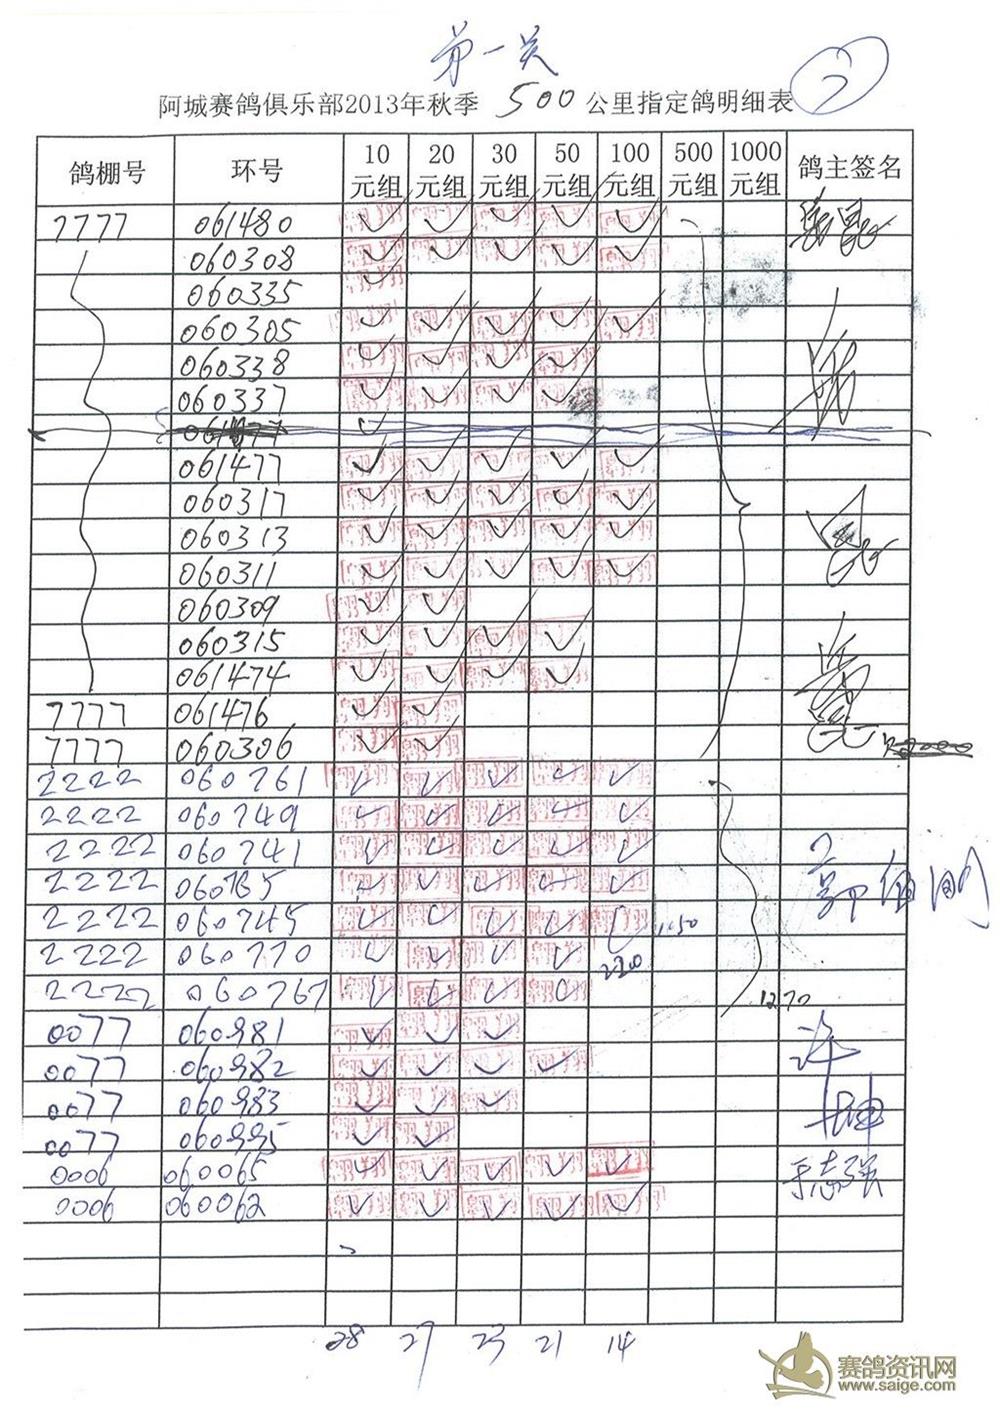 第一关
阿城赛鸽俱乐部2013年秋季 500 公里指定鸽明细表 2
鸽棚号 环号 10元组 20元组 30元组 50元组 100元组 500元组 1000元组 鸽主签名
7777 061480 ✓ ✓ ✓ ✓ ✓
060308 ✓ ✓ ✓ ✓ ✓
060335 ✓
060305 ✓ ✓ ✓ ✓ ✓
060338 ✓ ✓ ✓ ✓
060337 ✓ ✓ ✓ ✓
061477 ✓ ✓ ✓ ✓ ✓
060317 ✓ ✓ ✓ ✓ ✓
060313 ✓ ✓ ✓ ✓ ✓
060311 ✓ ✓ ✓ ✓ ✓
060309 ✓ ✓
060315 ✓ ✓ ✓ ✓
061474 ✓ ✓ ✓ ✓
7777 061476 ✓ ✓
7777 060306 ✓ ✓
2222 060761 ✓ ✓ ✓ ✓ ✓
2222 060749 ✓ ✓ ✓ ✓ ✓
2222 060741 ✓ ✓ ✓ ✓ ✓
2222 060765 ✓ ✓ ✓ ✓ ✓
2222 060745 ✓ ✓ ✓ ✓ ✓
2222 060770 ✓ ✓ ✓ ✓
2222 060767 ✓ ✓ ✓ ✓
1270
0077 060981 ✓ ✓ ✓ 许
0077 060982 ✓ ✓ ✓ ✓
0077 060983 ✓ ✓ ✓ 坤
0077 060995 ✓ ✓
0006 060065 ✓ ✓ ✓ ✓ ✓ 于志强
0006 060062 ✓ ✓ ✓ ✓ ✓
28 27 23 21 14
赛鸽资讯网
www.saige.com